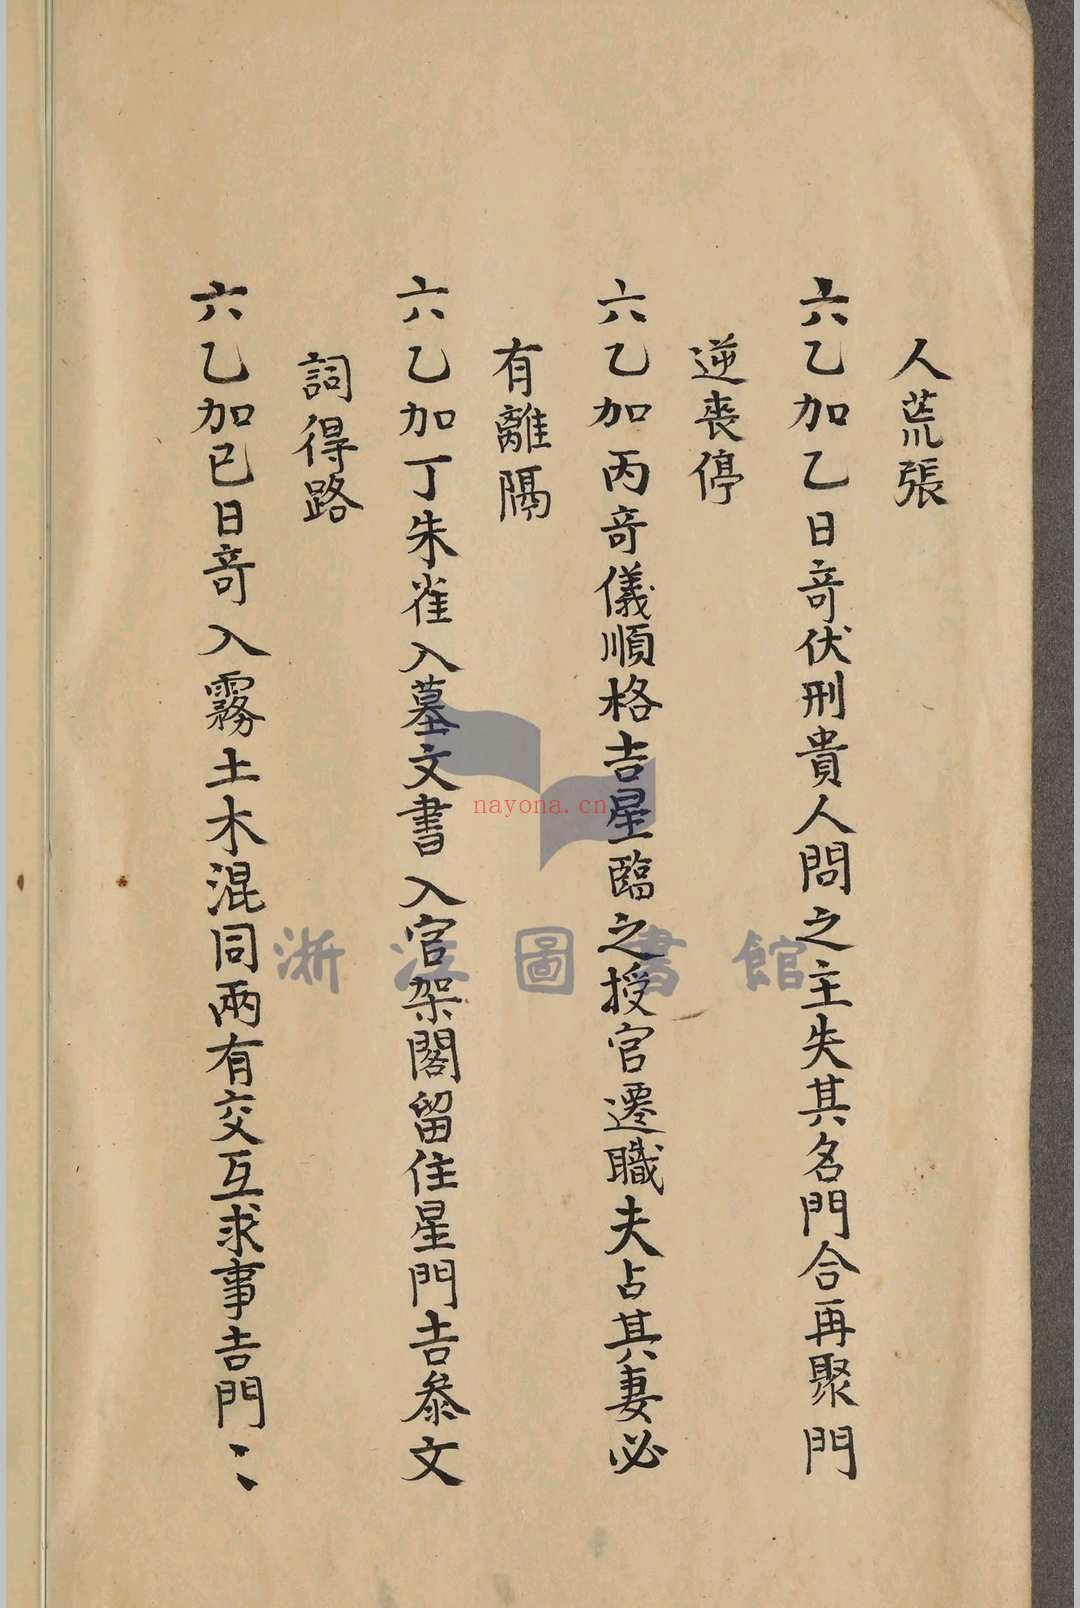 人荒張
六乙加乙日竒伏刑貴人問之主失其名門合再聚門
逆丧停
六乙加丙竒儀順格吉星臨之授官遷職夫占其妻必
有離隔
六乙加丁朱雀入墓文書入官架閣留住星門吉叅文
詞得路
六乙加已日竒入霧土木混同兩有交互求事吉門〻
nayona.cn
浙江圖書館